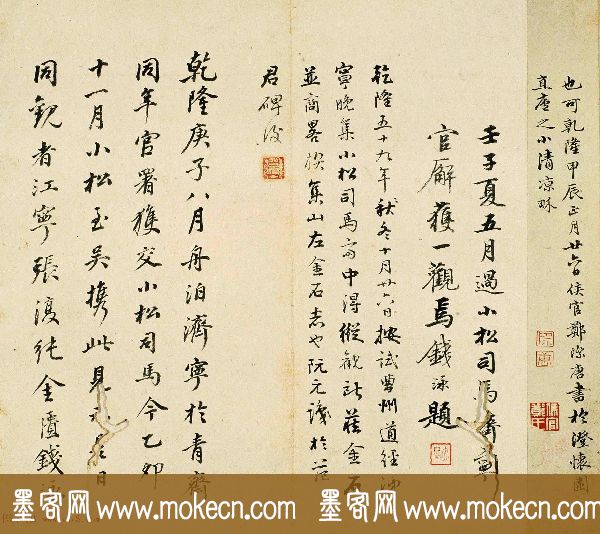 也可乾隆甲辰正月廿六日侯官鄭際唐書於澄懷園
直廬之小清涼
壬子夏五月過小松司馬濟寧
官廨獲一觀焉錢泳題
乾隆五十九年秋冬十月廿六日按試曹州道經濟
寧晚集小松司馬齋中得縱觀所藏金石
並商畧修集山左金石志也阮元識於范
君碑後
乾隆庚子八月舟泊濟寧於青齋
同年官署獲交小松司馬今乙卯
十一月小松至吳携此見
同觀者江寧張復純金匱錢泳
墨客网 www.mokecn.com
墨客网 www.mokecn.com